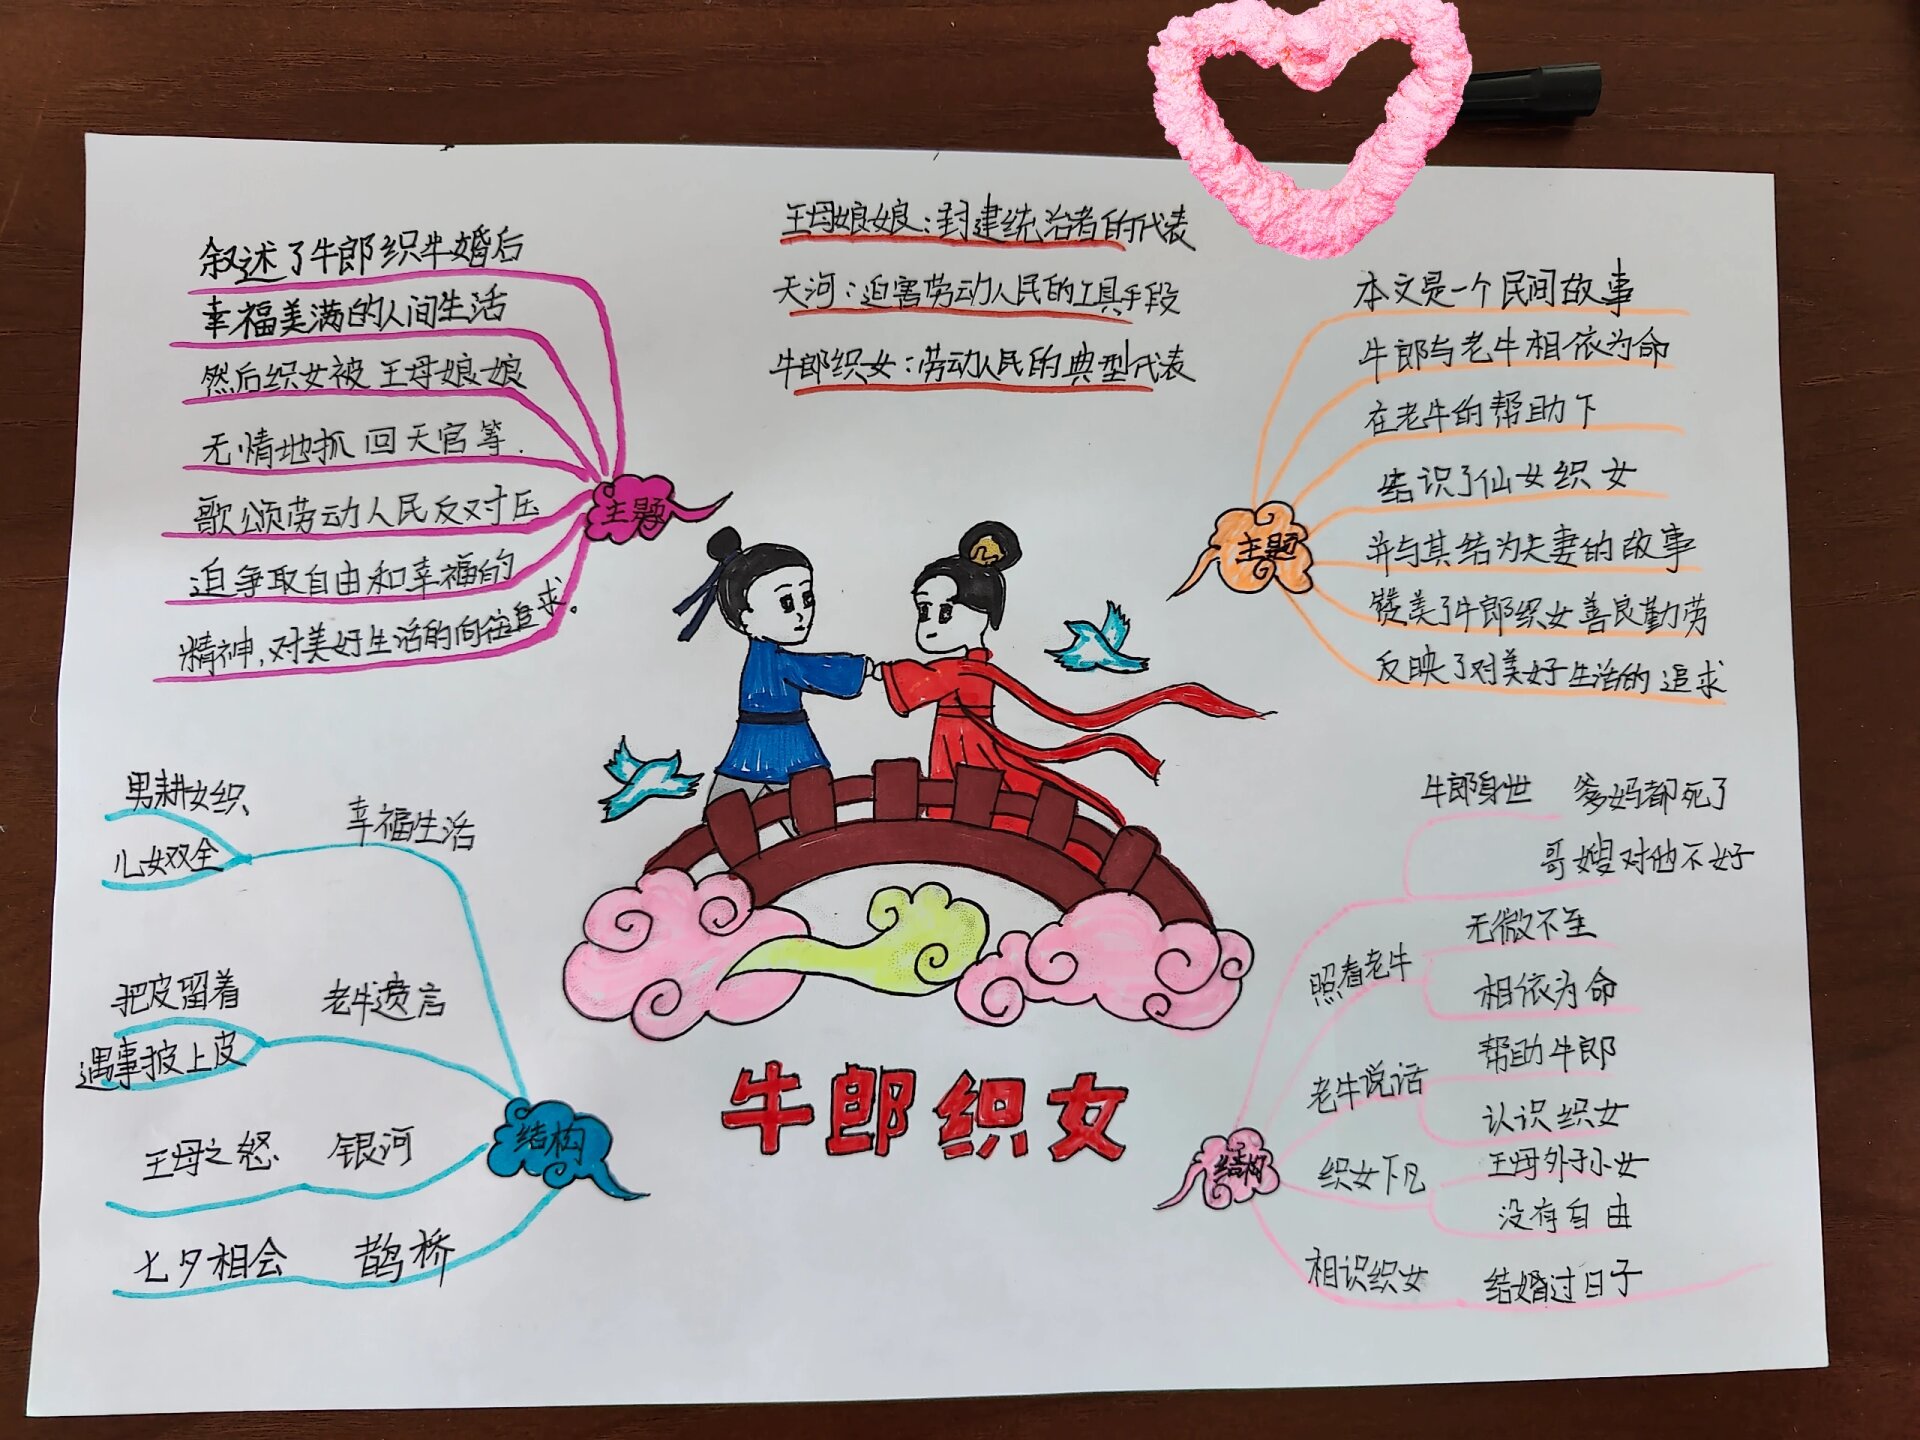 王母娘娘：封建统治者的代表
天河：迫害劳动人民的工具手段
牛郎织女：劳动人民的典型代表
叙述了牛郎织牛婚后
幸福美满的人间生活
然后织女被王母娘娘
无情地抓回天官等.
歌颂劳动人民反对压
迫争取自由和幸福的
精神,对美好生活的向往追求。
主题
本文是一个民间故事
牛郎与老牛相依为命
在老牛的帮助下
结识了仙女织女
并与其结为夫妻的故事
赞美了牛郎织女善良勤劳
反映了对美好生活的追求
主题
男耕女织
幸福生活
儿女双全
把皮留着
老牛遗言
遇事披上皮
王母之怒
银河
七夕相会
鹊桥
结构
牛郎织女
牛郎身世
爹妈都死了
哥嫂对他不好
照看老牛
无微不至
相依为命
老牛说话
帮助牛郎
认识织女
织女下凡
王母外于小女
没有自由
相识织女
结婚过日子
结构